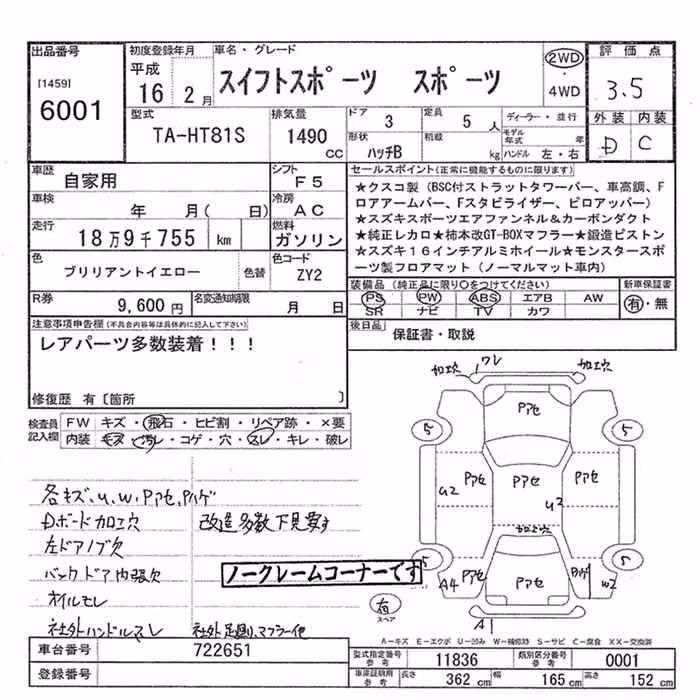 出品番号
[1459]
6001
初度登録年月
平成
16 2月
車名・グレード
スイフトスポーツ スポーツ
2WD
・
4WD
評価点
3.5
外装 内装
D C
型式
TA-HT81S
排気量
1490 CC
ドア
3
形状
ハッチB
定員
5 人
積載
kg
ディーラー・並行
モデル年式 年
ハンドル 左・右
車歴
自家用
シフト
F5
車検
年 月( 日)
冷房
AC
走行
18万9千755 km
燃料
ガソリン
色
ブリリアントイエロー
色替
色コード
ZY2
R券
9,600円
名変通知期限
月 日
セールスポイント(正常に機能するものに限ります)
★クスコ製(BSC付ストラットタワーバー、車高調、F
ロアアームバー、Fスタビライザー、ピロアッパー)
★スズキスポーツエアファンネル&カーボンダクト
★純正レカロ★柿本改GT-BOXマフラー★鍛造ピストン
★スズキ16インチアルミホイール★モンスタースポ
ーツ製フロアマット(ノーマルマット車内)
装備品(純正品に限り○をつけてください)
PS PW ABS エアB AW
SR ナビ TV カワ
新車保証書
有・無
後日品
保証書・取説
注意事項申告欄(不具合内容等は具体的に記入して下さい)
レアパーツ多数装着!!!
修復歴 有〔箇所 〕
検査員
記入欄
FW キズ・飛石・ヒビ割・リペア跡・×要
内装 キズ・汚レ・コゲ・穴・スレ・キレ・破レ
各キズ、u、w、Pアセ、Pハゲ
Dボード加工穴 改造多数下見要す
左ドアノブ欠
バックドア内張欠
ノークレームコーナーです
オイルモレ
社外ハンドルスレ 社外足廻り、マフラー他
加工穴 ワレ 加工穴
Pアセ
5 5
u2 Pアセ Pアセ u2
加工穴
5 5
A4 Pアセ Pアセ Pハゲ w2
A1
有
スペア
A-キズ E-エクボ U-凹み W-補修跡 S-サビ C-腐食 XX-交換済
車台番号
722651
登録番号
型式指定番号
参考
11836
類別区分番号
参考
0001
車庫証明用
参考
長さ 362 cm 幅 165 cm 高さ 152 cm